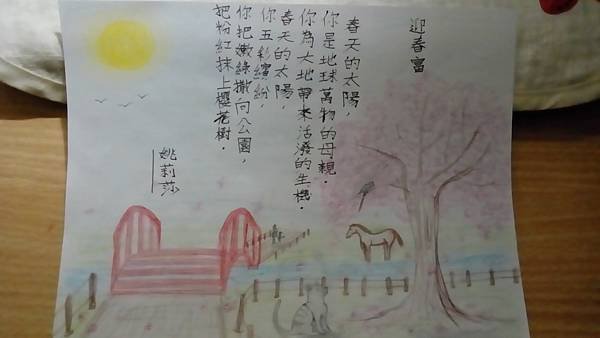 迎春富
春天的太陽，
你是地球萬物的母親．
你為大地帶來活潑的生機．
春天的太陽，
你五彩繽紛，
你把嫩綠撒向公園，
把粉紅抹上櫻花樹．
姚莉莎